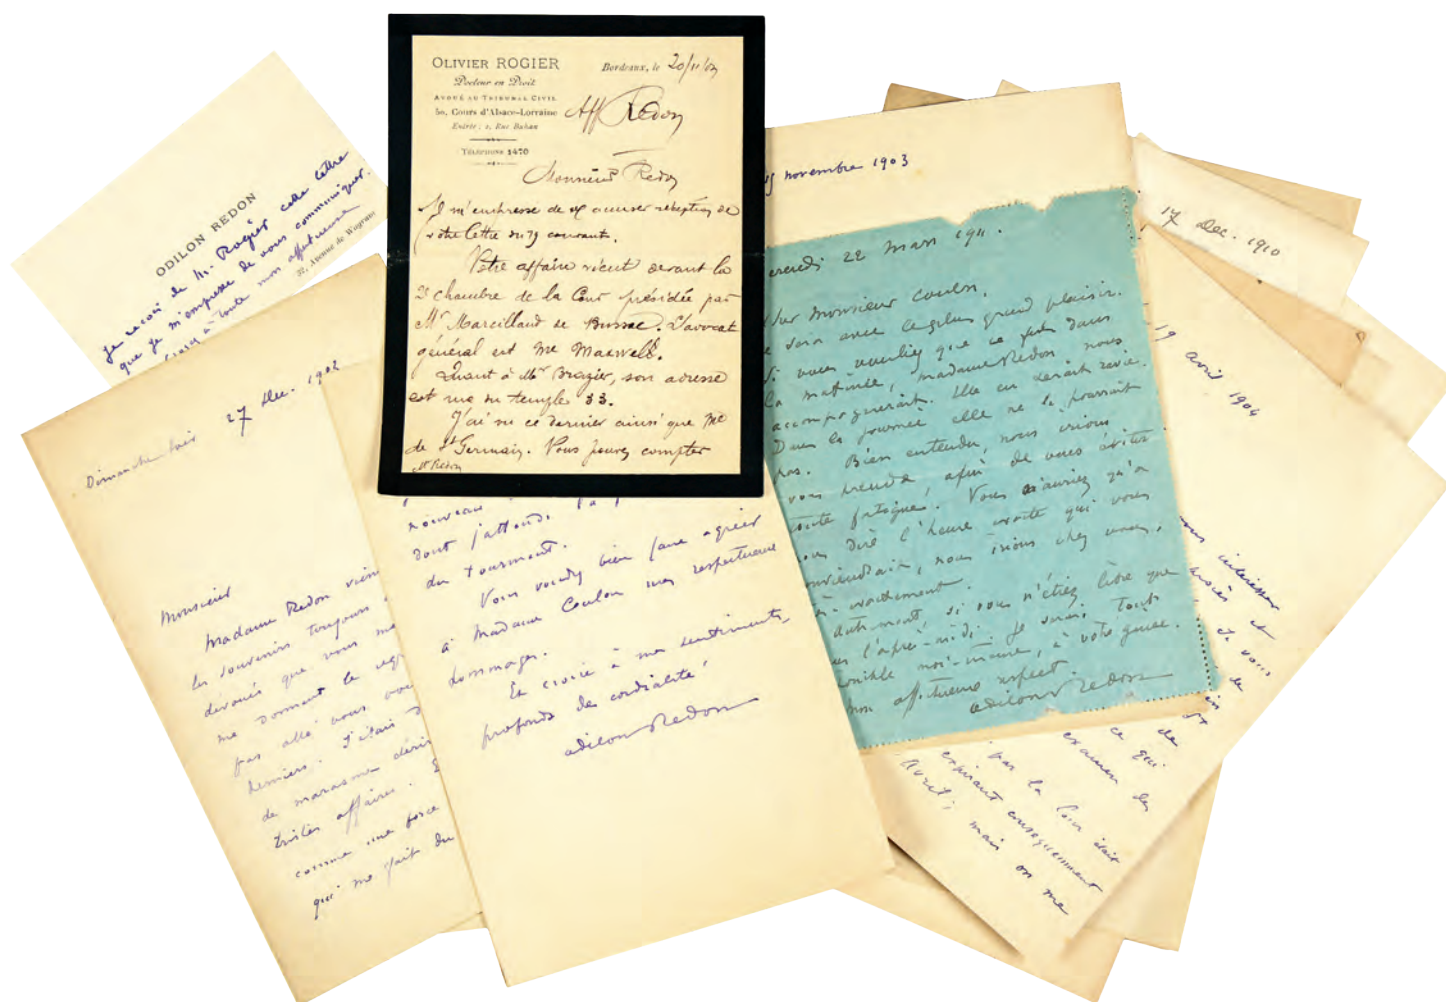 ODILON REDON
je reçois de M. Rogier cette lettre
que je m'empresse de vous communiquer.
à toute mon affectueuse
52, Avenue de Wagram
OLIVIER ROGIER
Docteur en Droit
AVOUÉ AU TRIBUNAL CIVIL
50, Cours d'Alsace-Lorraine
Entrée : 2, Rue Buhan
TÉLÉPHONE 1470
Bordeaux, le 20/11/03
Aff Redon
Monsieur Redon
Je m'empresse de accuser réception de
votre lettre du 19 courant.
Votre affaire vient devant la
2e chambre de la Cour présidée par
Mr Mareilland de Bussac. L'avocat
général est Me Maxwell.
Quant à Mr Brazier, son adresse
est rue du temple 33.
J'ai vu ce dernier ainsi que Me
de St Germain. Vous pouvez compter
Mr Redon
Dimanche soir 27 Dec. 1902
Monsieur
Madame Redon vien
les souvenirs toujours
dévoués que vous me
me donnant le reg
pas allé vous vo
derniers. J'étais d
de marasme
tristes affaires.
comme une force
qui me fait du
nouveau
dont j'attends la
du tourment.
Vous voudrez bien faire agréer
à Madame Coulon mes respectueux
hommages.
Et croire à mes sentiments
profonds de cordialité.
odilon Redon
novembre 1903
credi 22 Mars 1911.
Cher Monsieur Coulon,
sera avec le plus grand plaisir.
Si vous vouliez que ce fut dans
la matinée, madame Redon nous
accompagnerait. Elle en serait ravie.
Dans la journée elle ne le pourrait
pas. Bien entendu, nous irions
vous prendre, afin de vous éviter
toute fatigue. Vous n'auriez qu'à
nous dire l'heure exacte qui vous
conviendrait, nous irions chez vous,
exactement.
autrement, si vous n'étiez libre que
l'après-midi. Je serai tout
disponible moi-même, à votre guise.
mon affectueux respect.
odilon Redon
17 Dec. 1910
19 avril 1904
vous intéresser
procès et
Je vous
de
ce qui
examen des
par la Cour était
expirant conséquemment
Avril ; mais on me